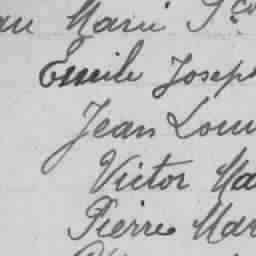 Marie
Emile Joseph
Jean Lou
Victor Ma
Pierre Mar